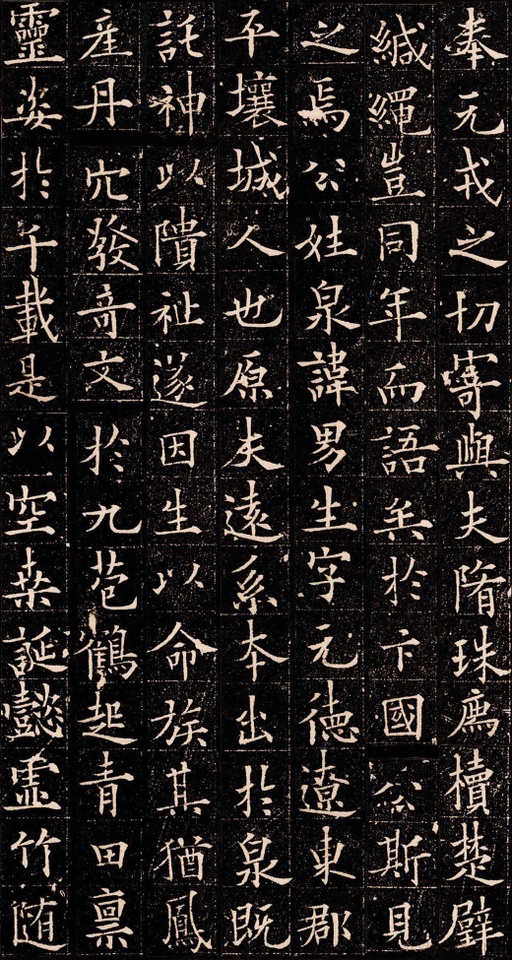 奉元戎之切寄與夫隋珠薦櫝楚璧
緘繩豈同年而語矣於卞國公斯見
之焉公姓泉諱男生字元德遼東郡
平壤城人也原夫遠系本出於泉既
託神以隤祉遂因生以命族其猶鳳
產丹穴發奇文於九苞鶴起青田稟
靈姿於千載是以空桑誕懿虛竹隨